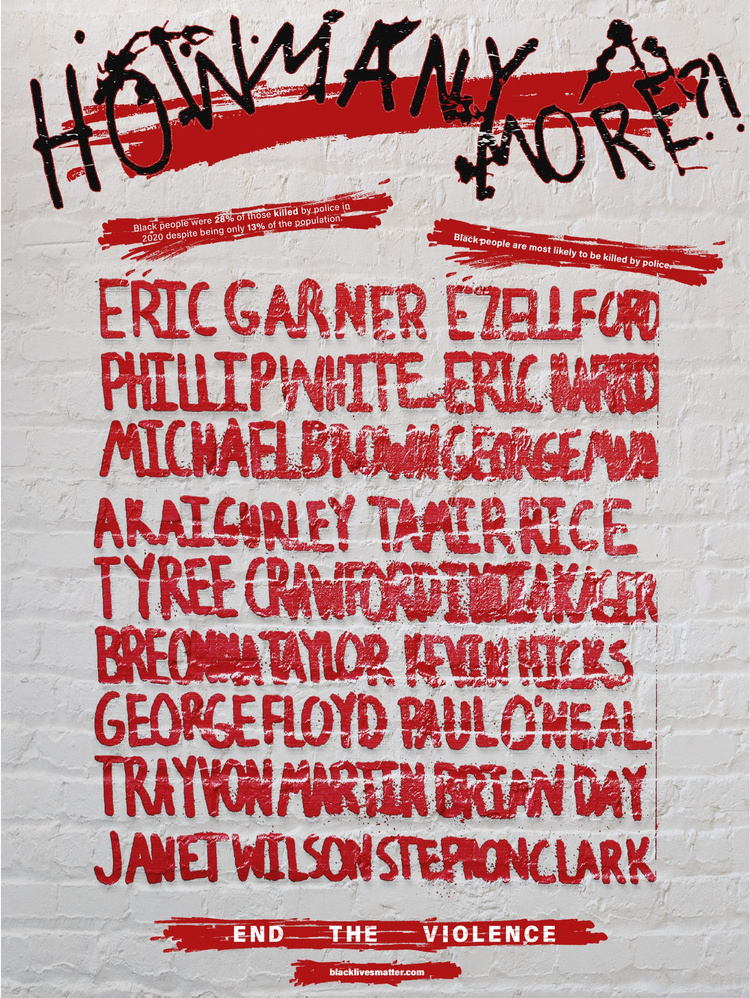 HOW MANY MORE?!
Black people were 28% of those killed by police in
2020 despite being only 13% of the population.
Black people are most likely to be killed by police.
ERIC GARNER EZELL FORD
PHILLIP WHITE ERIC HARRIS
MICHAEL BROWN GEORGE
AKAI GURLEY TAMIR RICE
TYREE CRAWFORD
BREONNA TAYLOR KEVIN HICKS
GEORGE FLOYD PAUL O'NEAL
TRAYVON MARTIN BRIAN DAY
JANET WILSON STEPHON CLARK
END THE VIOLENCE
blacklivesmatter.com